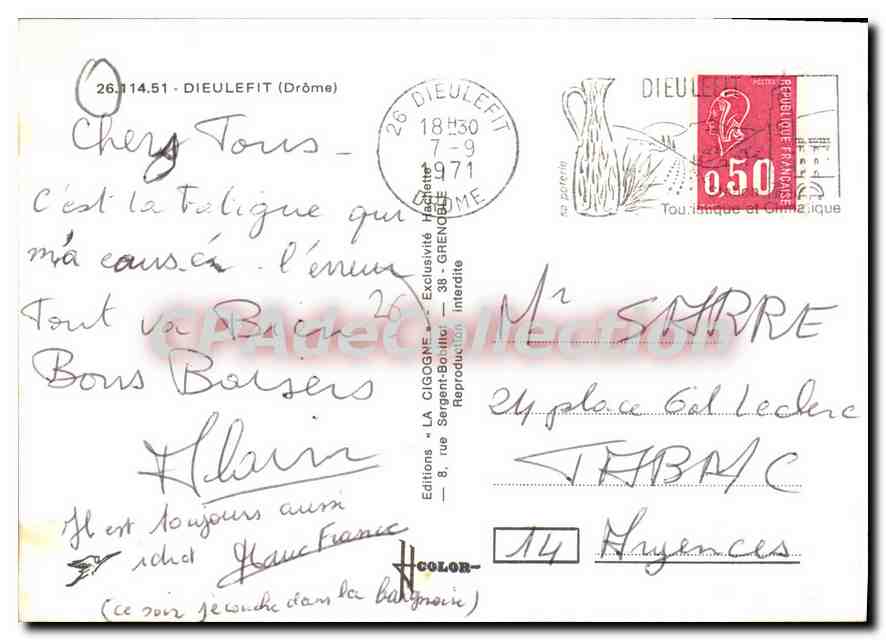 26.114.51 - DIEULEFIT (Drôme)
Chers Tous -
C'est la Fatigue qui
m'a causé l'erreur
Tout va Bien 26
Bons Baisers
Alain
Il est toujours aussi
idiot
(ce soir je couche dans la baignoire)
Editions « LA CIGOGNE » - Exclusivité Hachette
— 8, rue Sergent-Bobillot — 38 - GRENOBLE
Reproduction interdite
COLOR
26 DIEULEFIT
18H30
7-9
1971
DROME
DIEULEFIT
sa poterie
Touristique et Climatique
POSTES
REPUBLIQUE FRANÇAISE
0,50
Mr SARRE
24 place Gal Leclerc
TABAC
14 Argences
CPAdeCollection